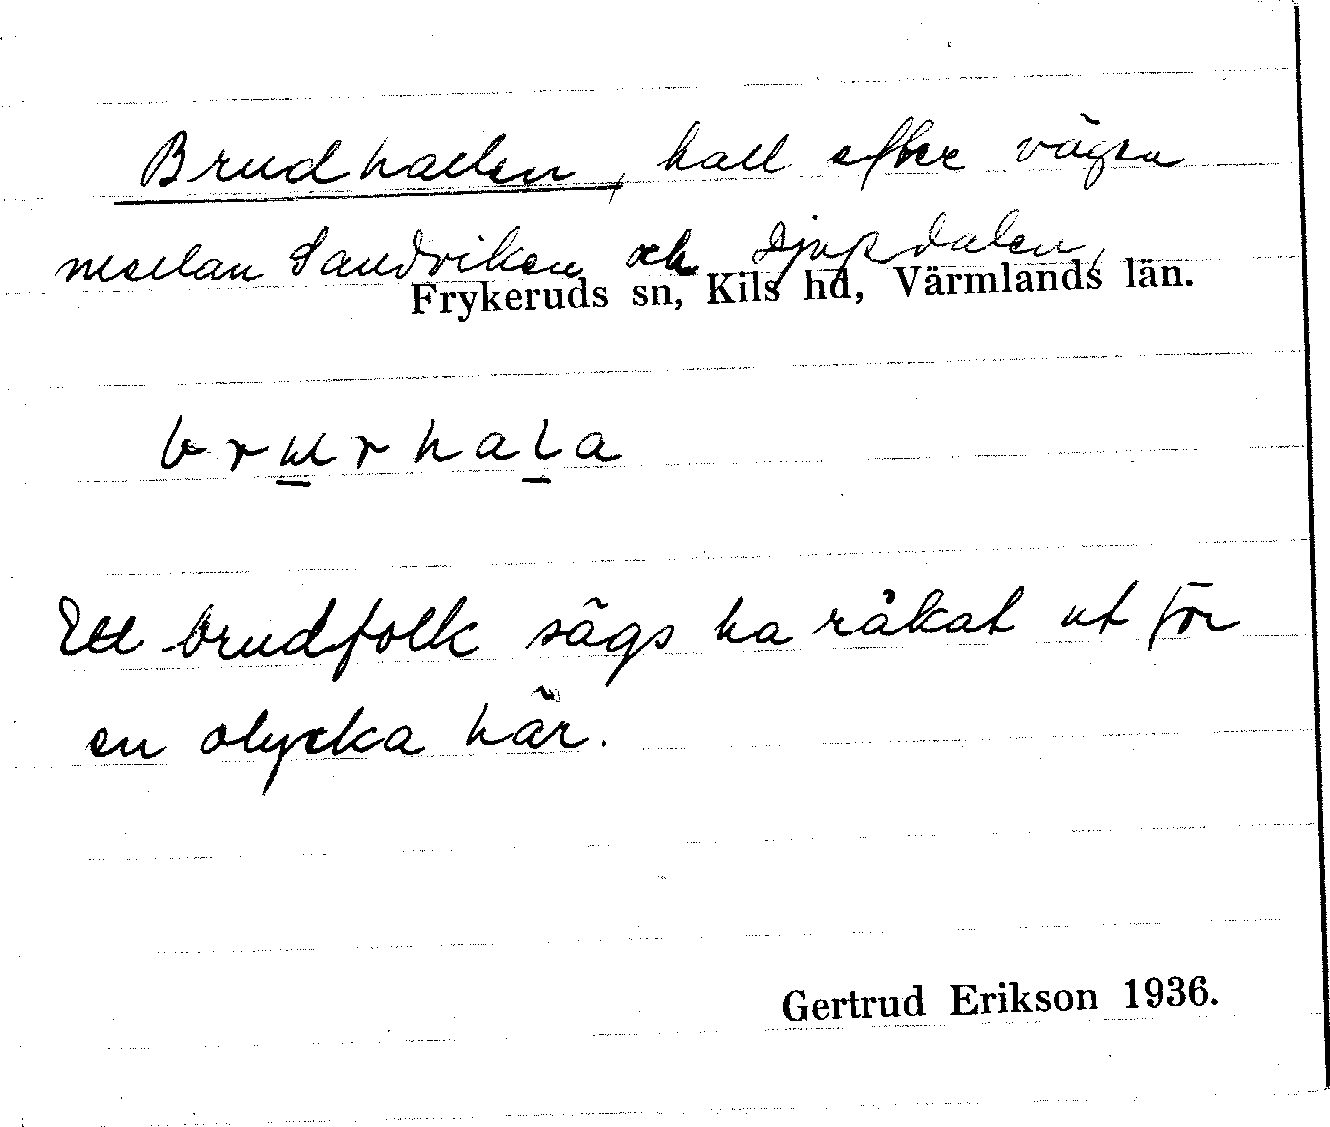 Brudhallen, hall efter vägen
mellan Sandviken och Djupdalen,
Frykeruds sn, Kils hd, Värmlands län.
brurhala
Ett brudfolk sägs ha råkat ut för
en olycka här.
Gertrud Erikson 1936.